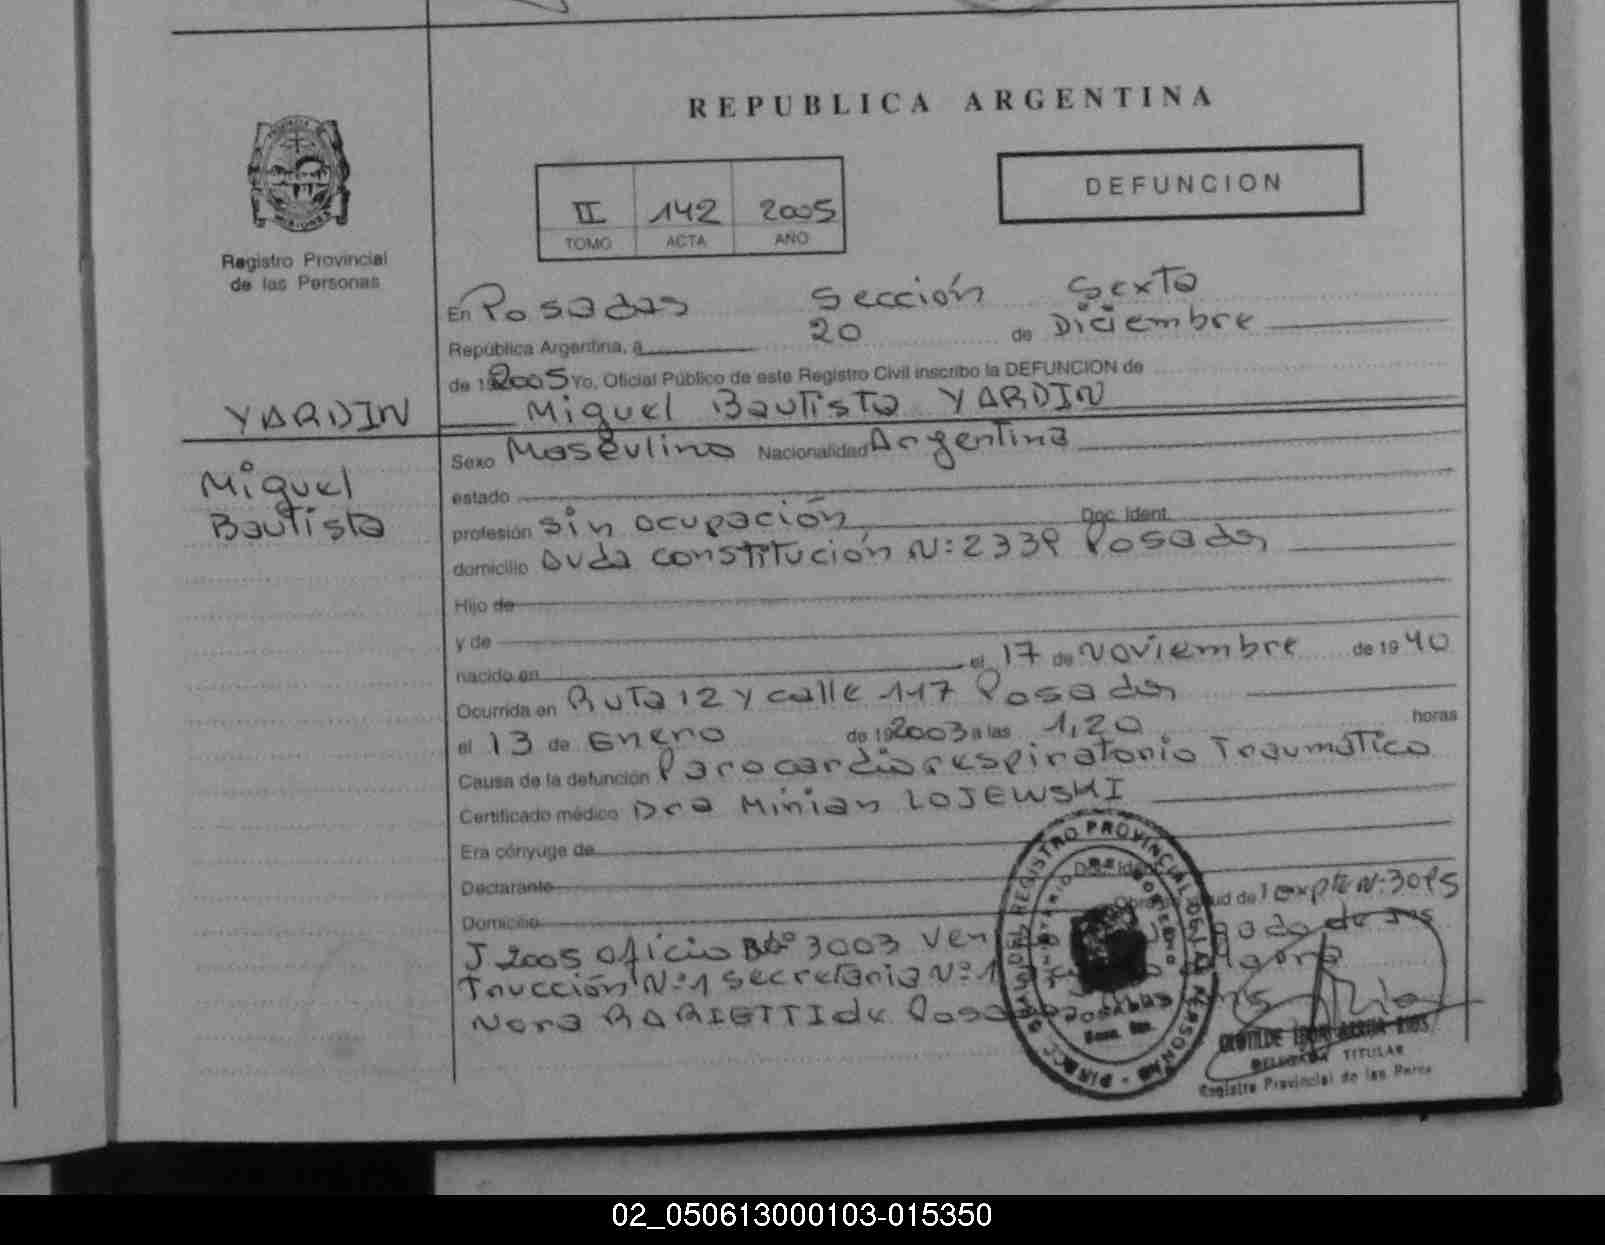 REPUBLICA ARGENTINA
DEFUNCION
II 142 2005
TOMO ACTA AÑO
Registro Provincial
de las Personas
En Posadas Sección Sexta
República Argentina, a 20 de Diciembre
de 2005 Yo, Oficial Público de este Registro Civil inscribo la DEFUNCION de
YARDIN
Miguel Bautista YARDIN
Miguel
Bautista
Sexo Masculino Nacionalidad Argentina
estado
profesión sin ocupación Doc. Ident.
domicilio Avda constitución N: 2339 Posadas
Hijo de
y de
nacido en el 17 de Noviembre de 1940
Ocurrida en Ruta 12 y calle 117 Posadas
el 13 de Enero de 2003 a las 1,20 horas
Causa de la defunción Parocardiorespiratorio Traumatico
Certificado médico Dra Mirian LOJEWSKI
Era cónyuge de
Declarante
Domicilio
J 2005 oficio 3003
Trucción N°1 secretaria N°1
Nora BARIETTI de
REGISTRO PROVINCIAL DE LAS PERSONAS
POSADAS
DELEGADA TITULAR
Registro Provincial de las Pers
02_050613000103-015350